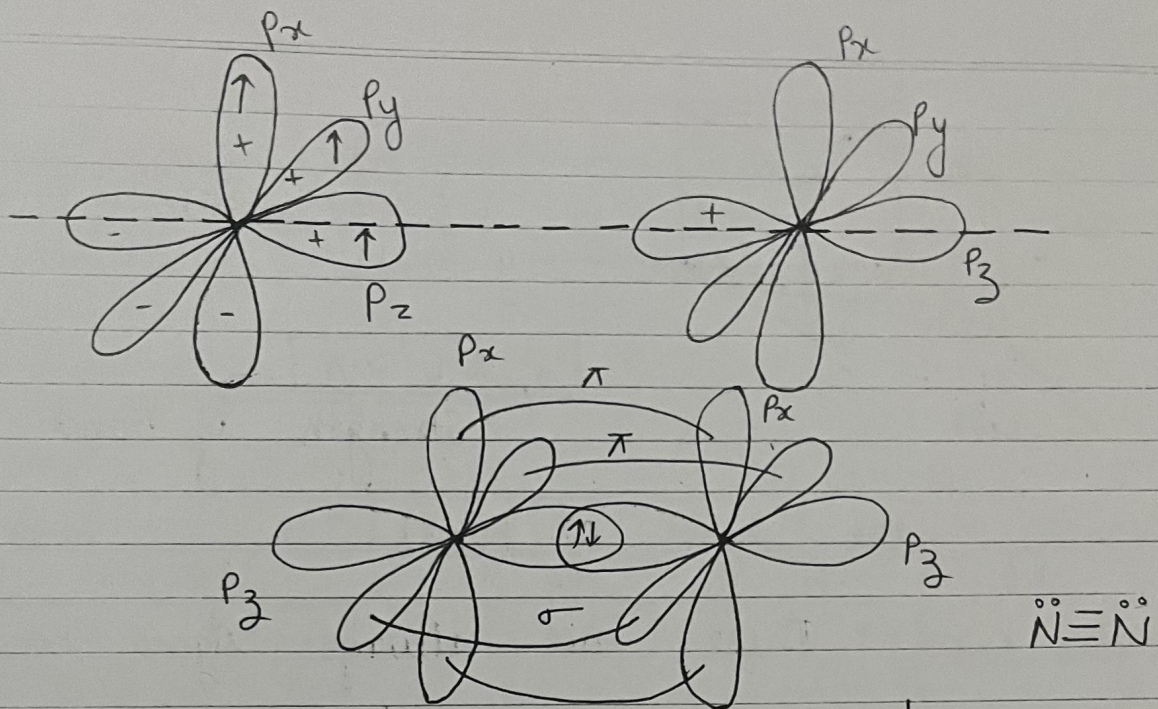 Px Px
↑ Py Py
+ ↑
+
- + ↑ +
Pz Pz
- -
Px
π
Px
π
↑↓
Pz Pz
σ
N̈≡N̈